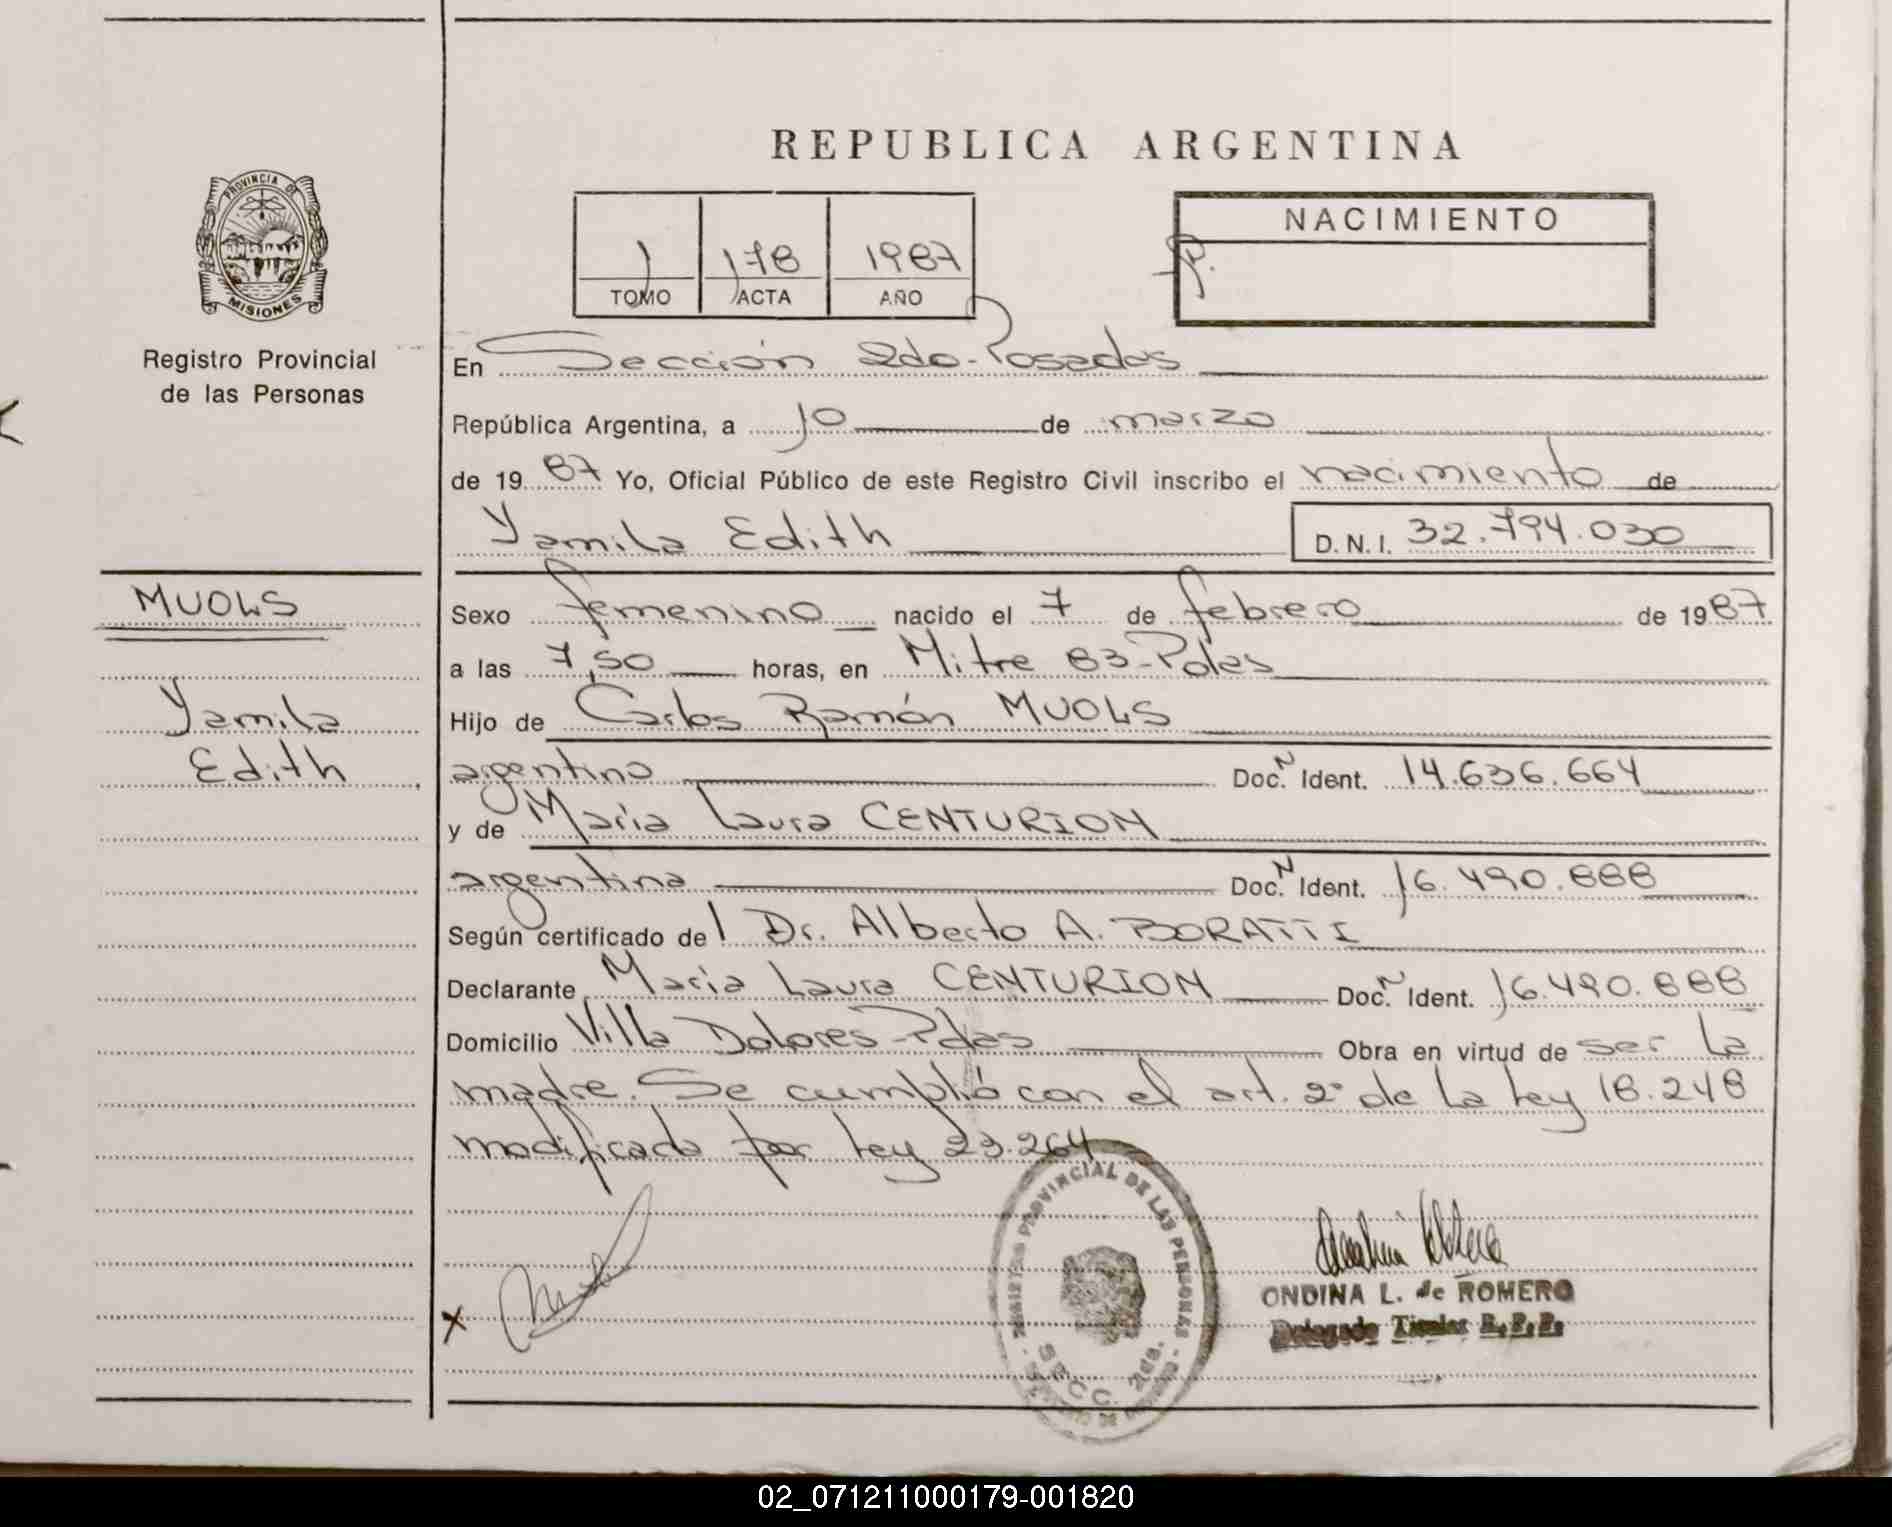 REPUBLICA ARGENTINA
PROVINCIA DE
MISIONES
Registro Provincial
de las Personas
1 178 1987
TOMO ACTA AÑO
NACIMIENTO
En Sección 2da-Posadas
República Argentina, a 10 de marzo
de 1987 Yo, Oficial Público de este Registro Civil inscribo el nacimiento de
Yamila Edith D.N.I. 32.794.030
MUOLS
Yamila
Edith
Sexo femenino nacido el 7 de febrero de 1987
a las 7,50 horas, en Mitre 83-Pdas
Hijo de Carlos Ramón MUOLS
argentino Doc. N Ident. 14.636.664
y de María Laura CENTURION
argentina Doc. N Ident. 16.490.888
Según certificado del Dr. Alberto A. BORATTI
Declarante María Laura CENTURION Doc. N Ident. 16.490.888
Domicilio Villa Dolores-Pdas Obra en virtud de ser la
madre. Se cumplió con el art. 2° de la Ley 18.248
modificada por Ley 23.264
PROVINCIAL DE LAS PERSONAS
SECC. 2da.
X
ONDINA L. de ROMERO
Delegado Titular R.P.P.
02_071211000179-001820